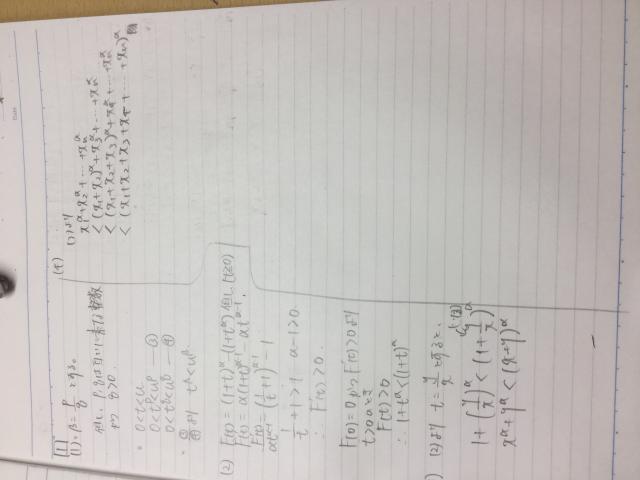 (1) β = p/q とする。
但し、p, qは互いに素な整数
かつ q>0.
0<t<u
0<t^p<u^p —③
—④
③ ④より t^α<u^α
(2) F(t) = (1+t)^α-(1+t^α) 但し、(t≥0)
F'(t) = α(1+t)^{α-1} - αt^{α-1}
F'(t)/αt^{α-1} = (1/t+1)^{α-1} - 1
1/t+1>1 α-1>0
∴ F'(t)>0.
F(0)=0かつF'(t)>0より
t>0のとき
F(t)>0
∴ 1+t^α<(1+t)^α
) (2)より t=y/xとすると、
1+(y/x)^α < (1+y/x)^α
x^α+y^α < (x+y)^α
(4)
(3)より
x₁^α+x₂^α+…+xₙ^α
< (x₁+x₂)^α+x₃^α+…+xₙ^α
< (x₁+x₂+x₃)^α+x₄^α+…+xₙ^α
< (x₁+x₂+x₃+x₄+…+xₙ)^α